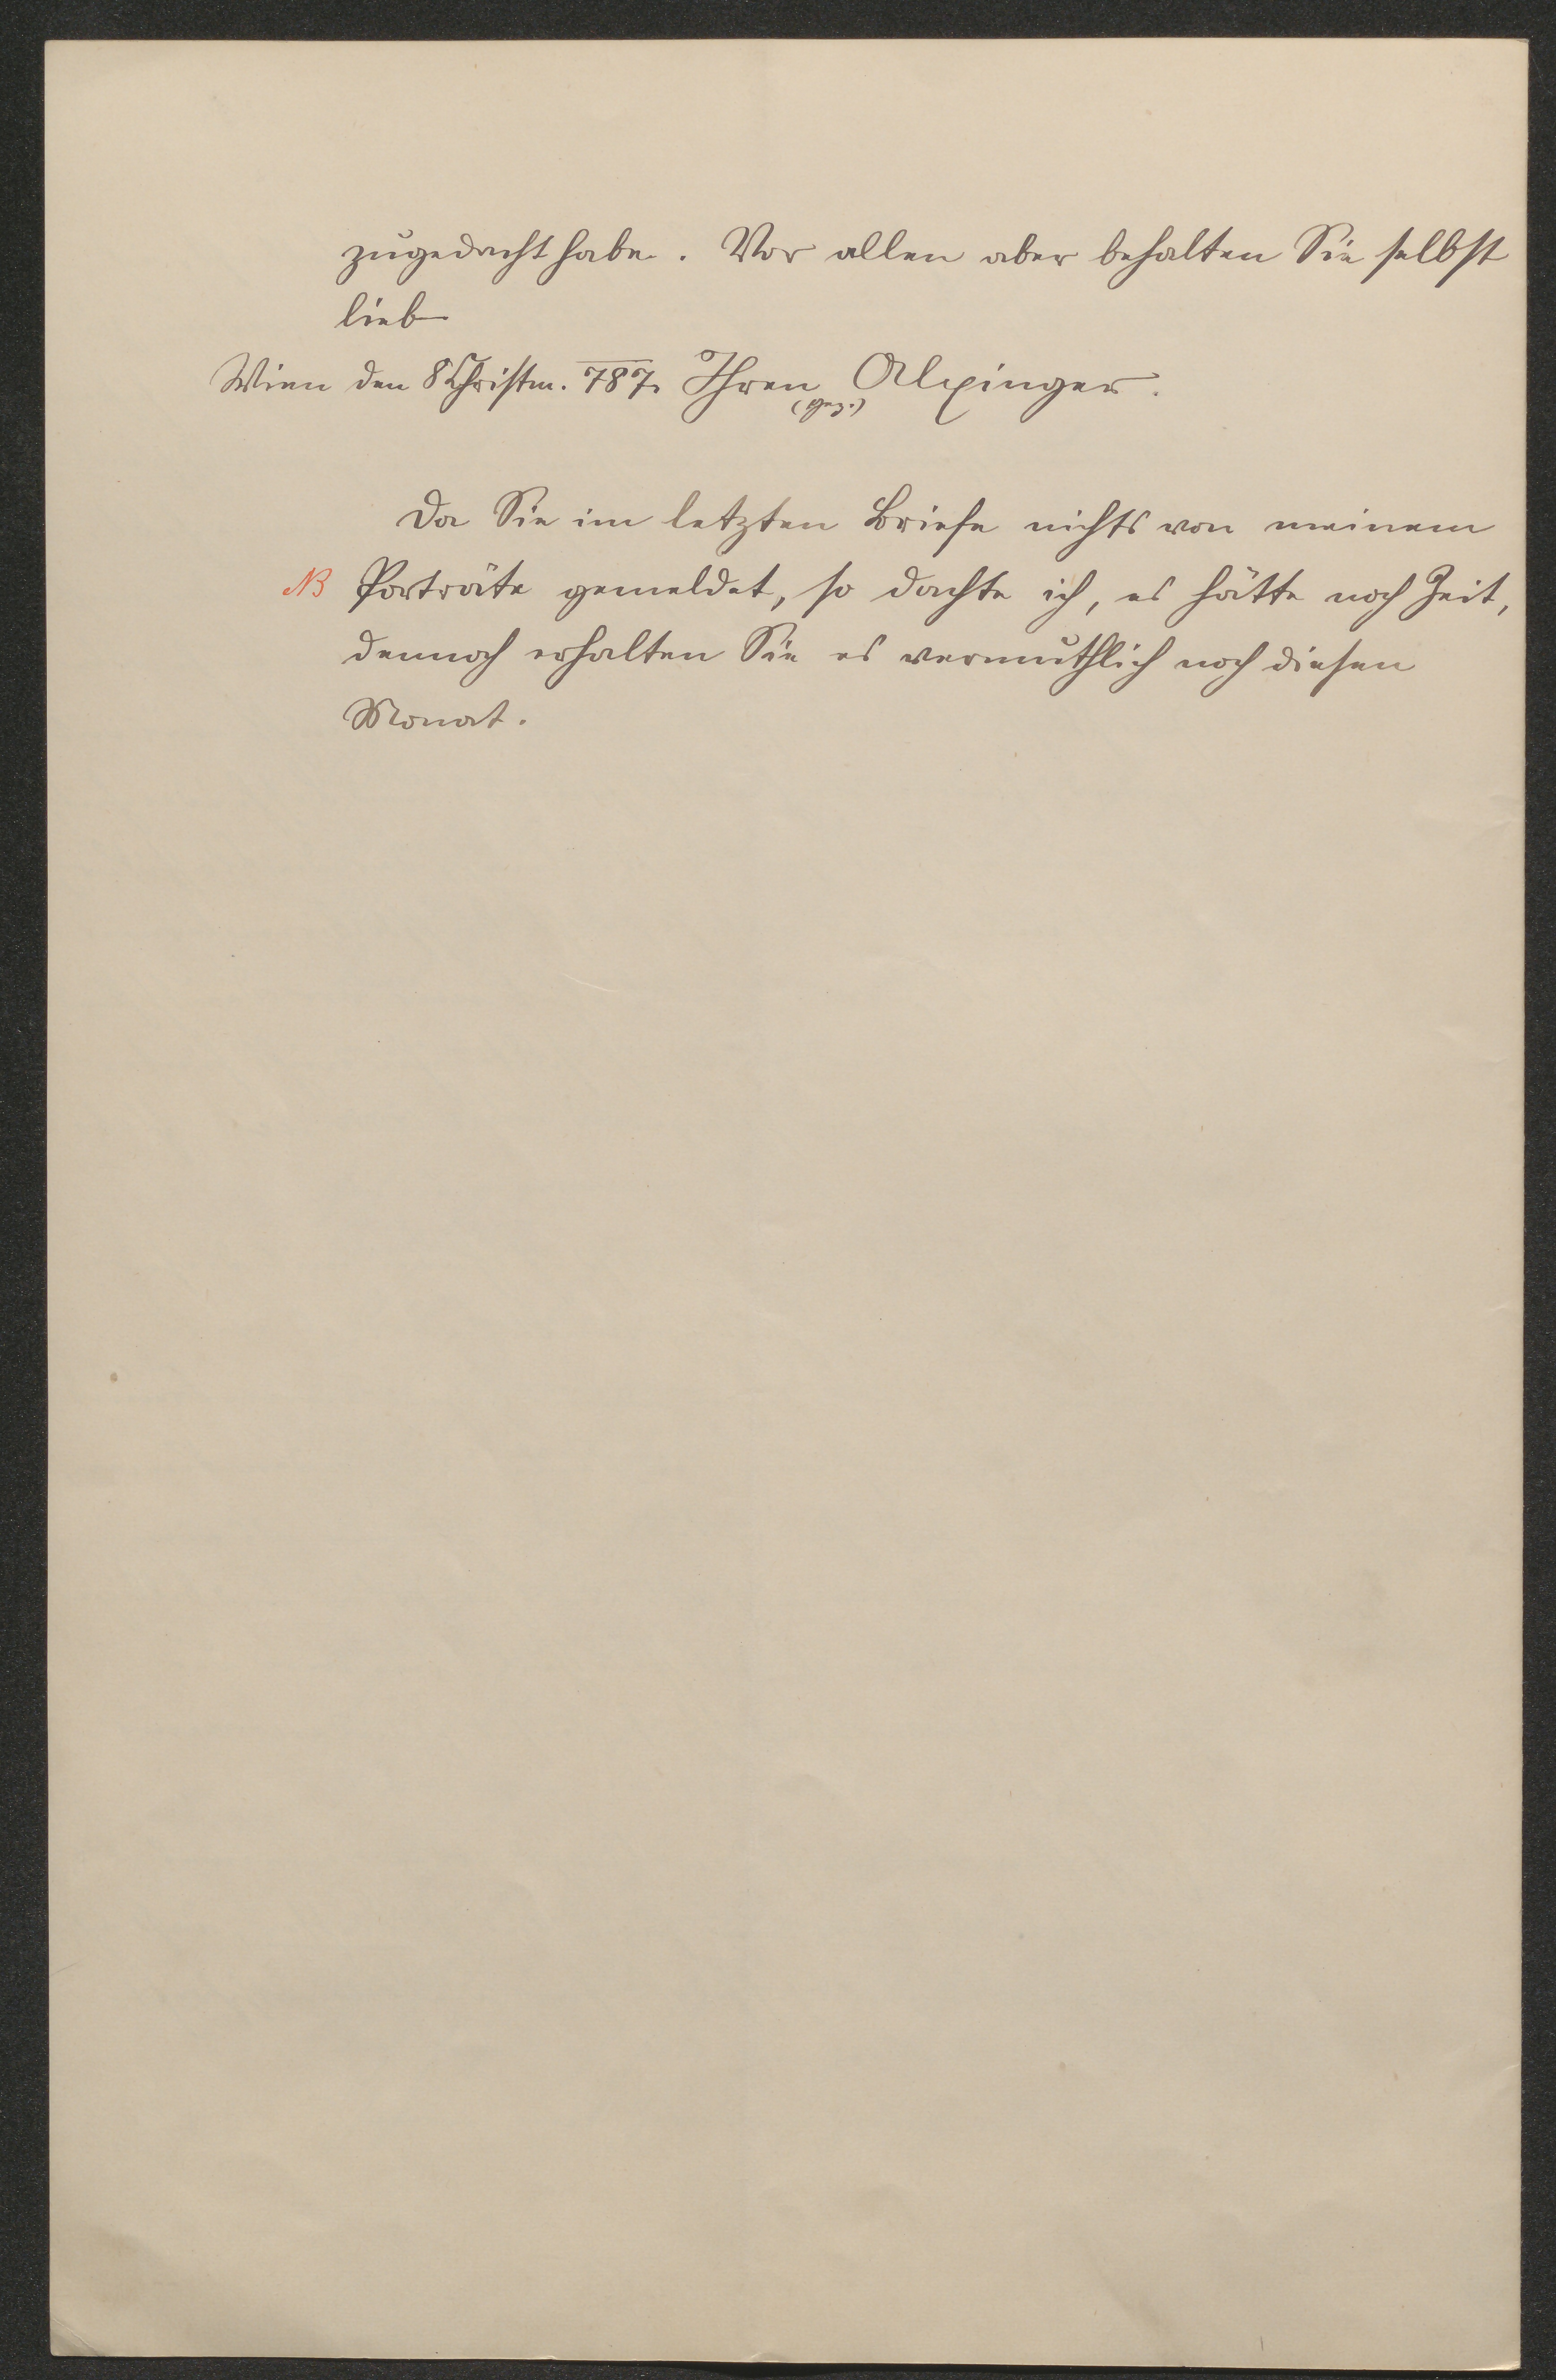 zugedacht habe. Vor allen aber behalten Sie selbst
lieb
Wien den 8 Christm. 787. Ihren (gez.) Alxinger.
Da Sie im letzten Briefe nichts von meinem
NB Porträte gemeldet, so dachte ich, es hätte noch Zeit,
dennoch erhalten Sie es vermuthlich noch diesen
Monat.